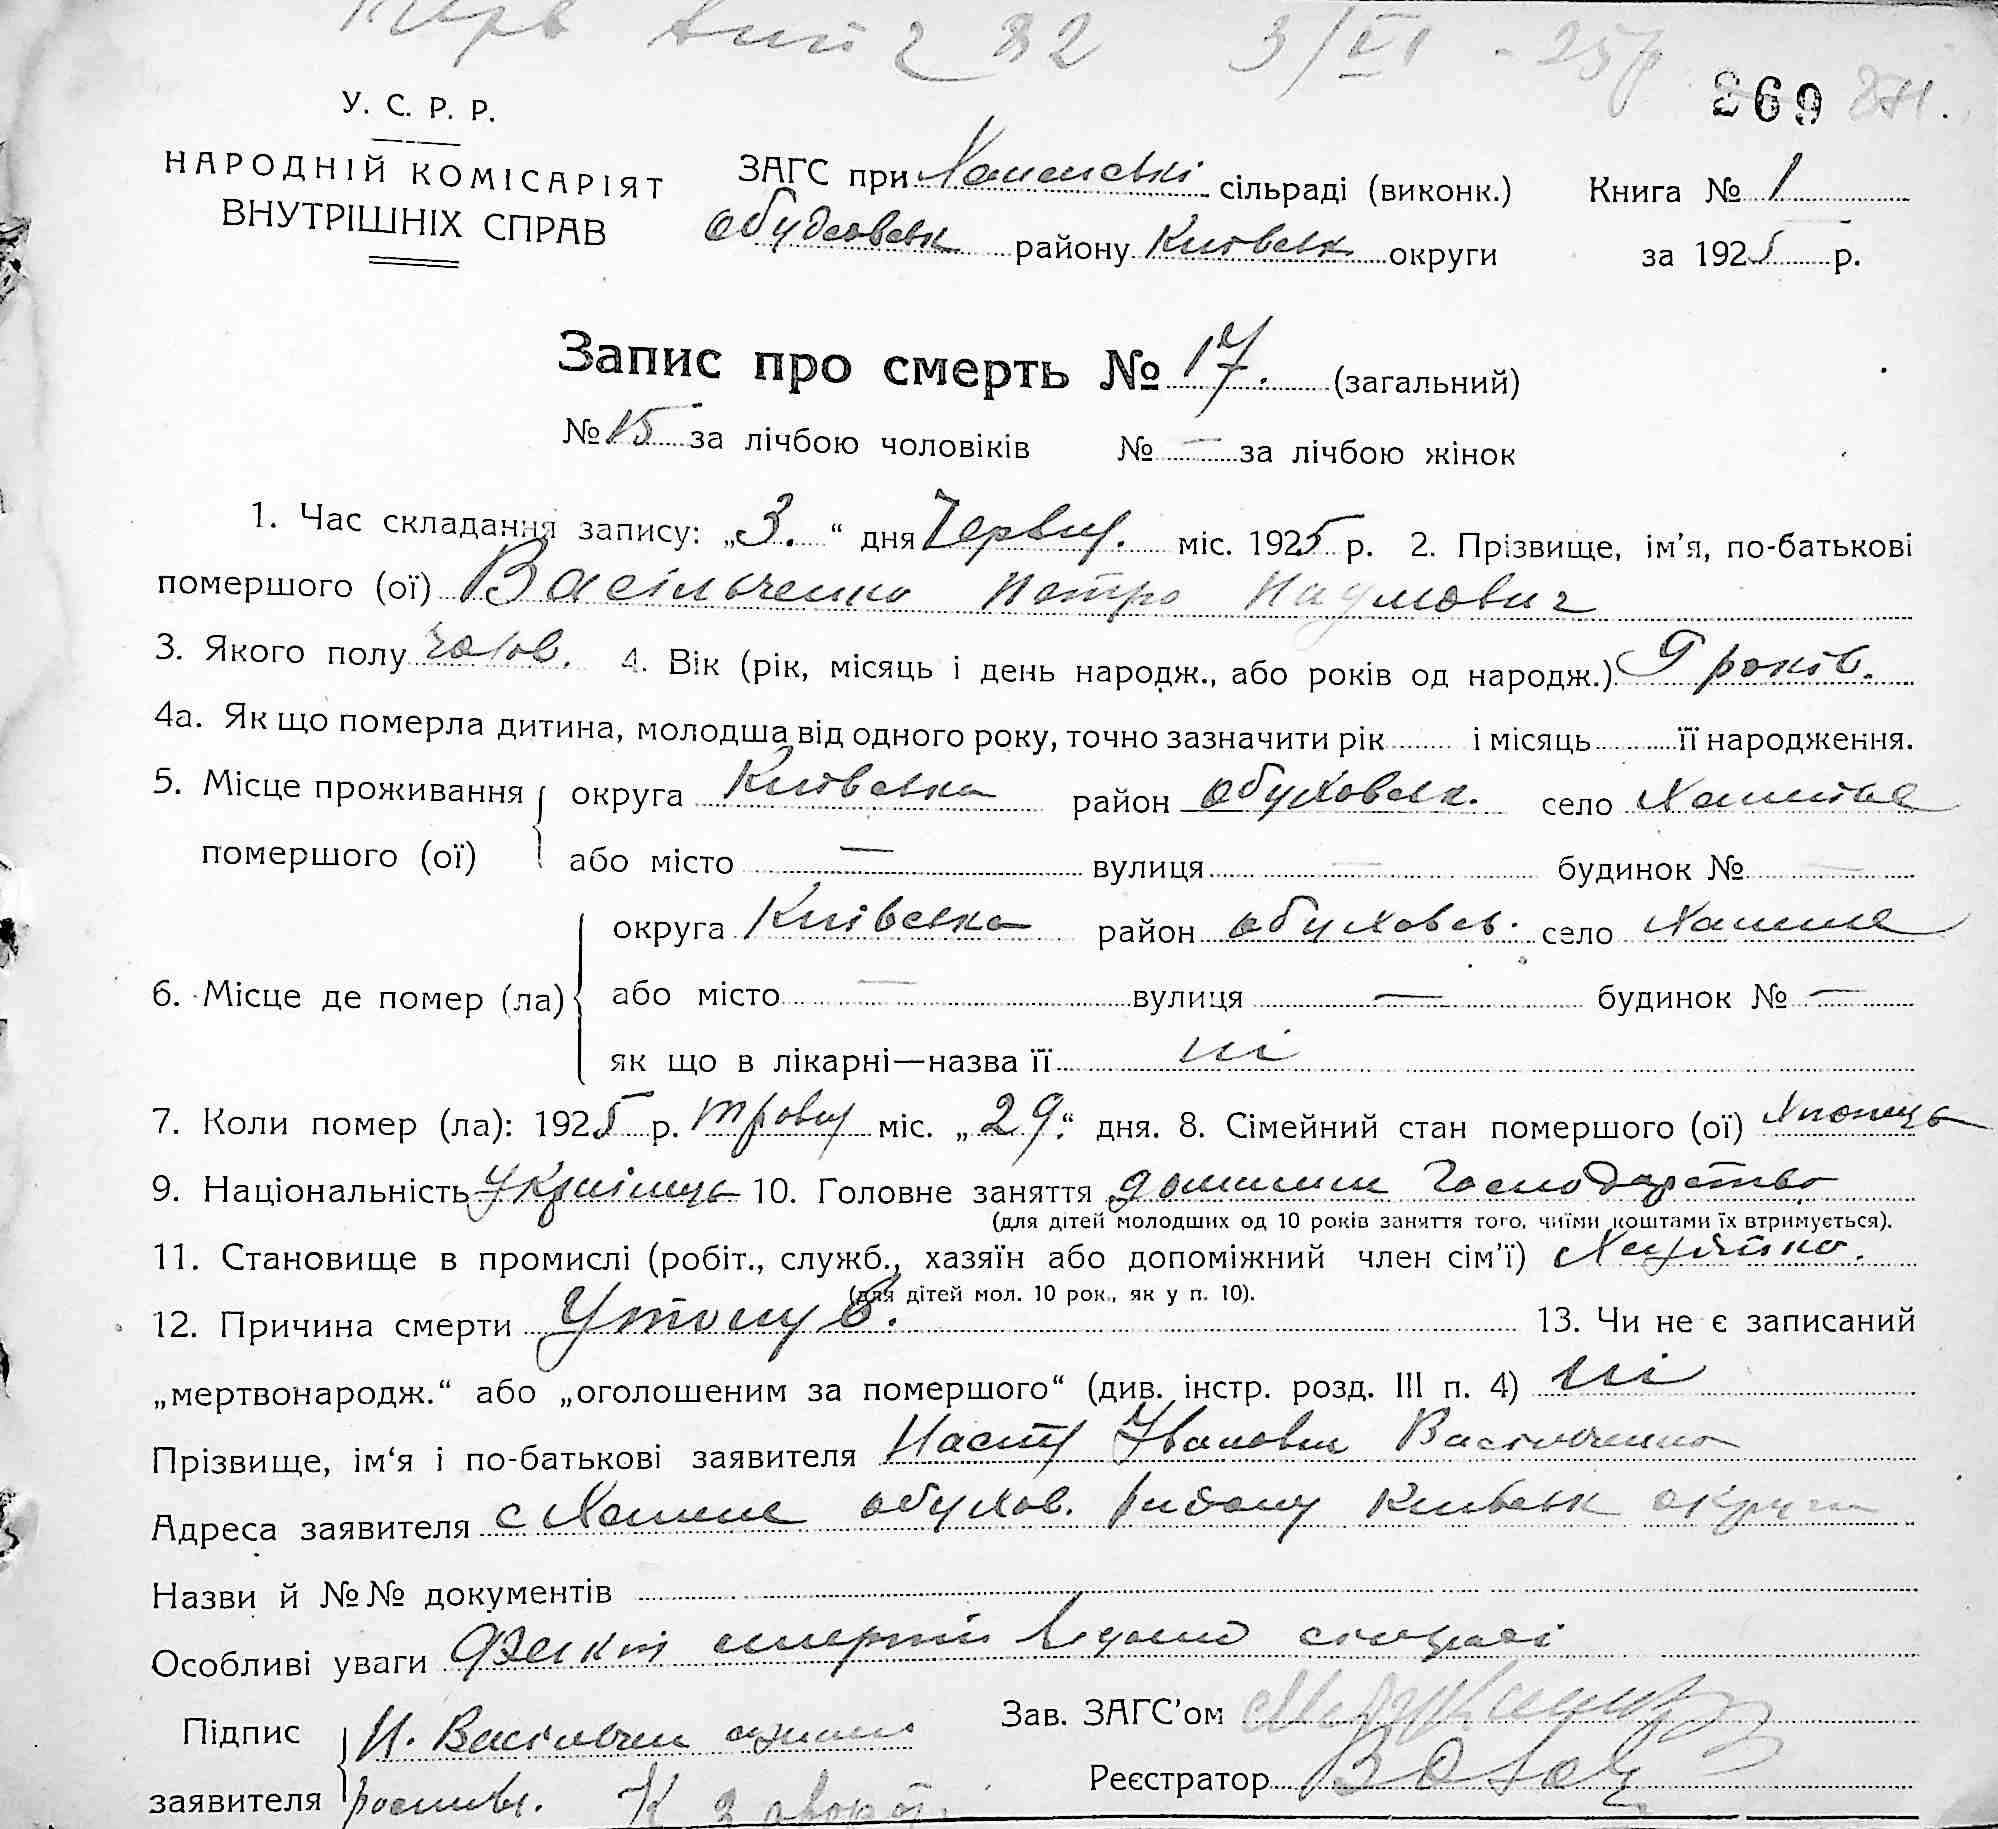 82 3/VI - 25р
269
У. С. Р. Р.
НАРОДНІЙ КОМІСАРІЯТ
ВНУТРІШНІХ СПРАВ
ЗАГС при сільраді (виконк.) Книга № 1
району Київськ округи за 1925 р.
Запис про смерть № 17. (загальний)
№ 15 за лічбою чоловіків № — за лічбою жінок
1. Час складання запису: „3.“ дня Червц. міс. 1925 р. 2. Прізвище, ім'я, по-батькові
помершого (ої) Васільченко Петро Наумович
3. Якого полу чолов. 4. Вік (рік, місяць і день народж., або років од народж.) 9 років.
4а. Як що померла дитина, молодша від одного року, точно зазначити рік і місяць її народження.
5. Місце проживання округа Київська район Обуховськ. село
помершого (ої) або місто — вулиця — будинок № —
округа Київська район Обуховсь. село
6. Місце де помер (ла) або місто — вулиця — будинок № —
як що в лікарні—назва її ні
7. Коли помер (ла): 1925 р. травц міс. „29“ дня. 8. Сімейний стан помершого (ої) хлопець
9. Національність Українець 10. Головне заняття господарство
(для дітей молодших од 10 років заняття того, чиїми коштами їх втримується).
11. Становище в промислі (робіт., служб., хазяїн або допоміжний член сім'ї) Хазяйка.
(для дітей мол. 10 рок., як у п. 10).
12. Причина смерти Утонув. 13. Чи не є записаний
„мертвонародж.“ або „оголошеним за помершого“ (див. інстр. розд. III п. 4) ні
Прізвище, ім'я і по-батькові заявителя Настя Івановна Васільченко
Адреса заявителя с Обухов. району Київськ округи
Назви й №№ документів
Особливі уваги Факт смерти відомо сільраді
Підпис Н. Васільчен Зав. ЗАГС'ом
заявителя Реєстратор